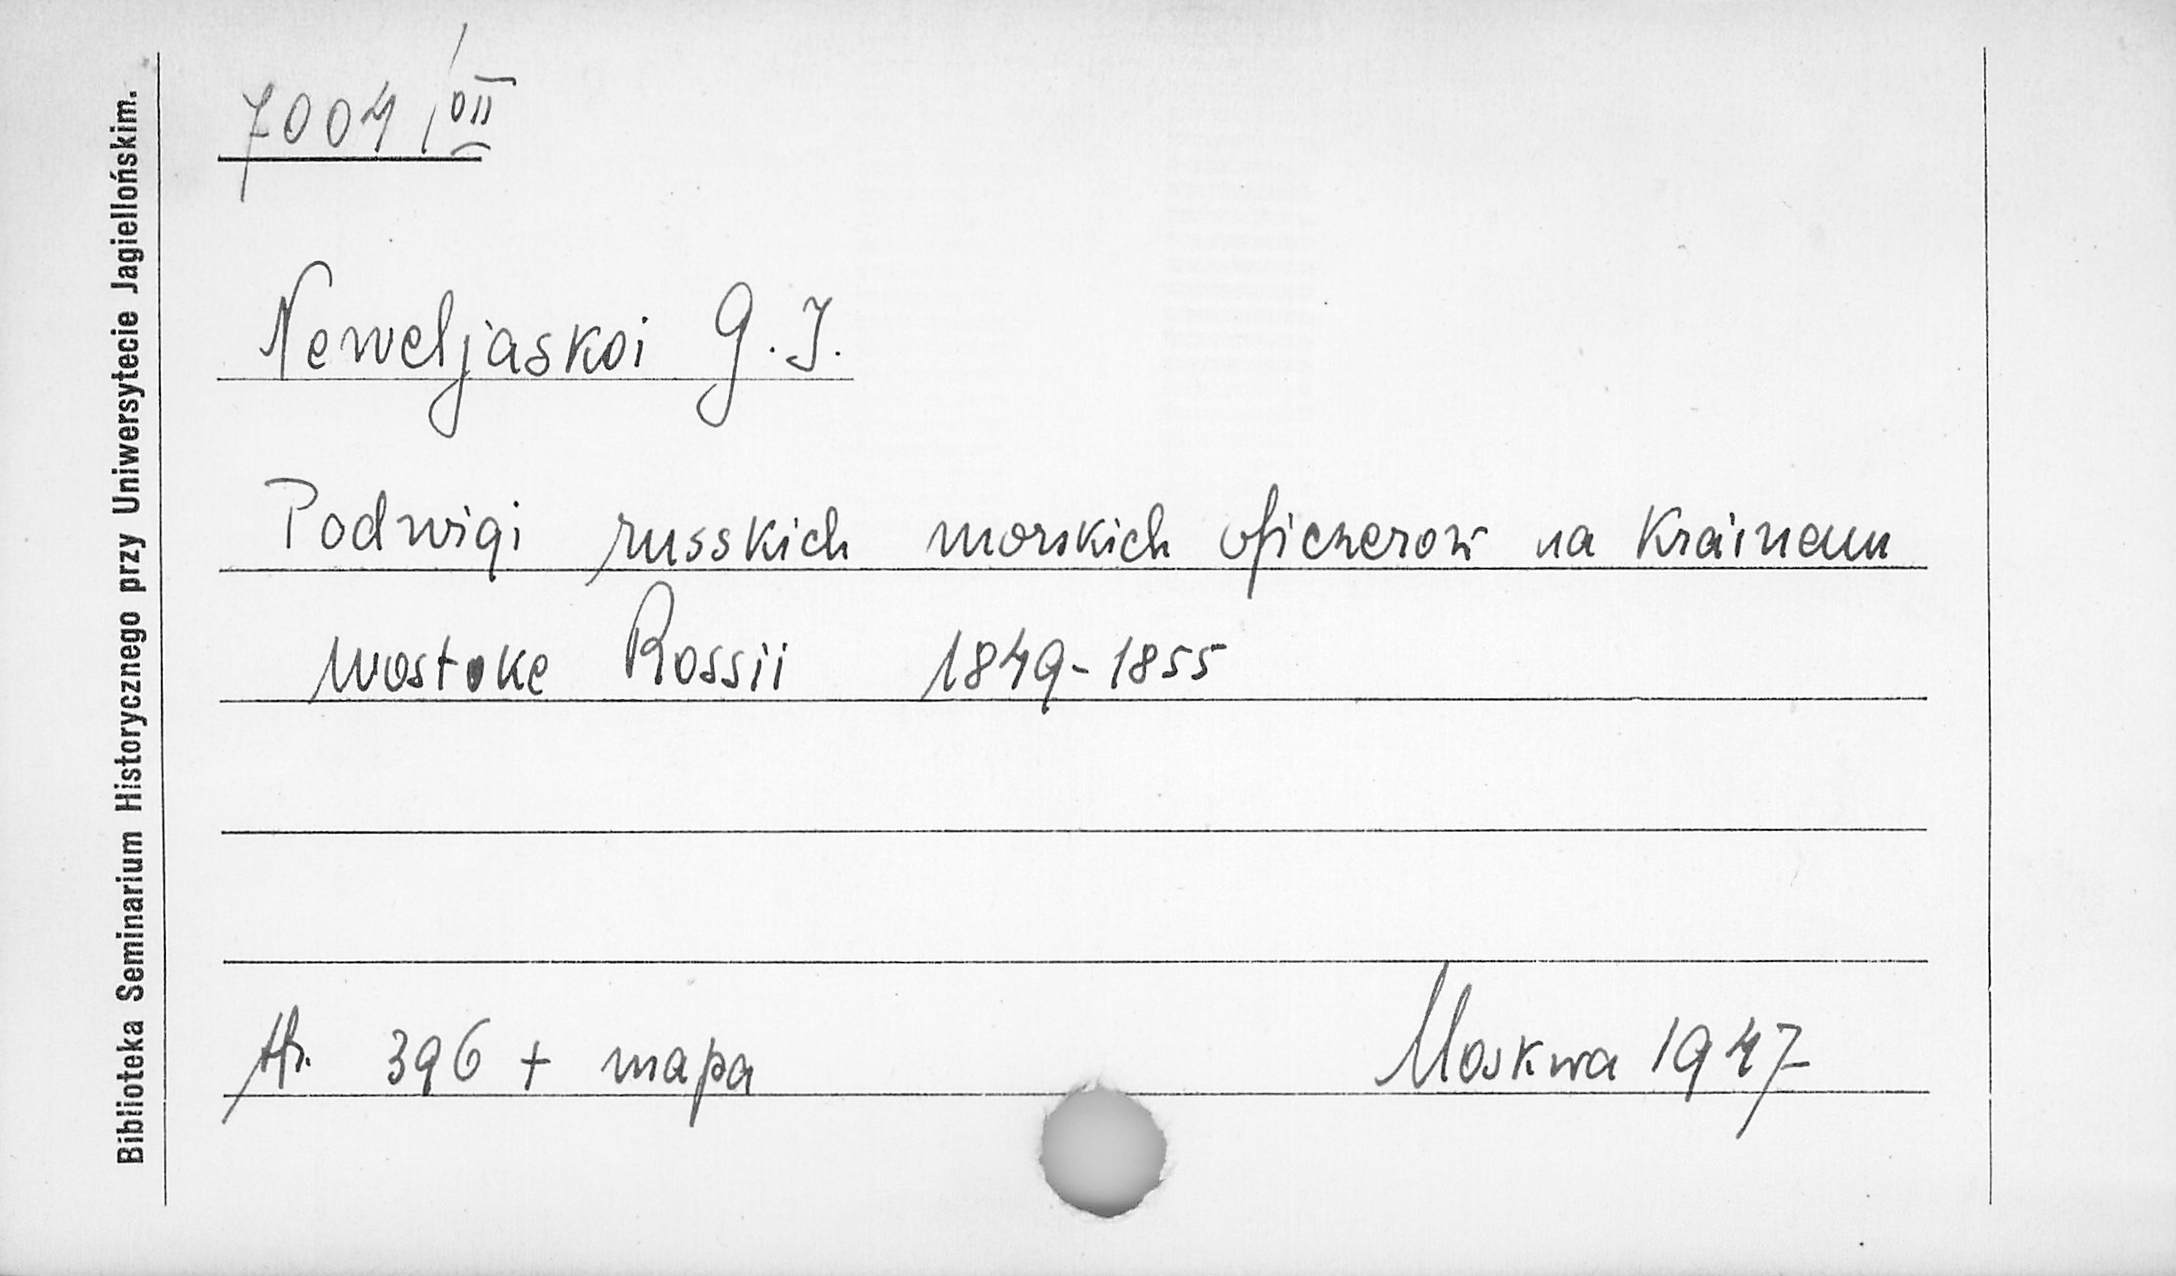 Biblioteka Seminarium Historycznego przy Uniwersytecie Jagiellońskim.
7004
Neweljaskoi G. J.
Podwigi russkich morskich oficzerow na Krainem
wostoke Rossii 1849-1855
str. 396 + mapa Moskwa 1947